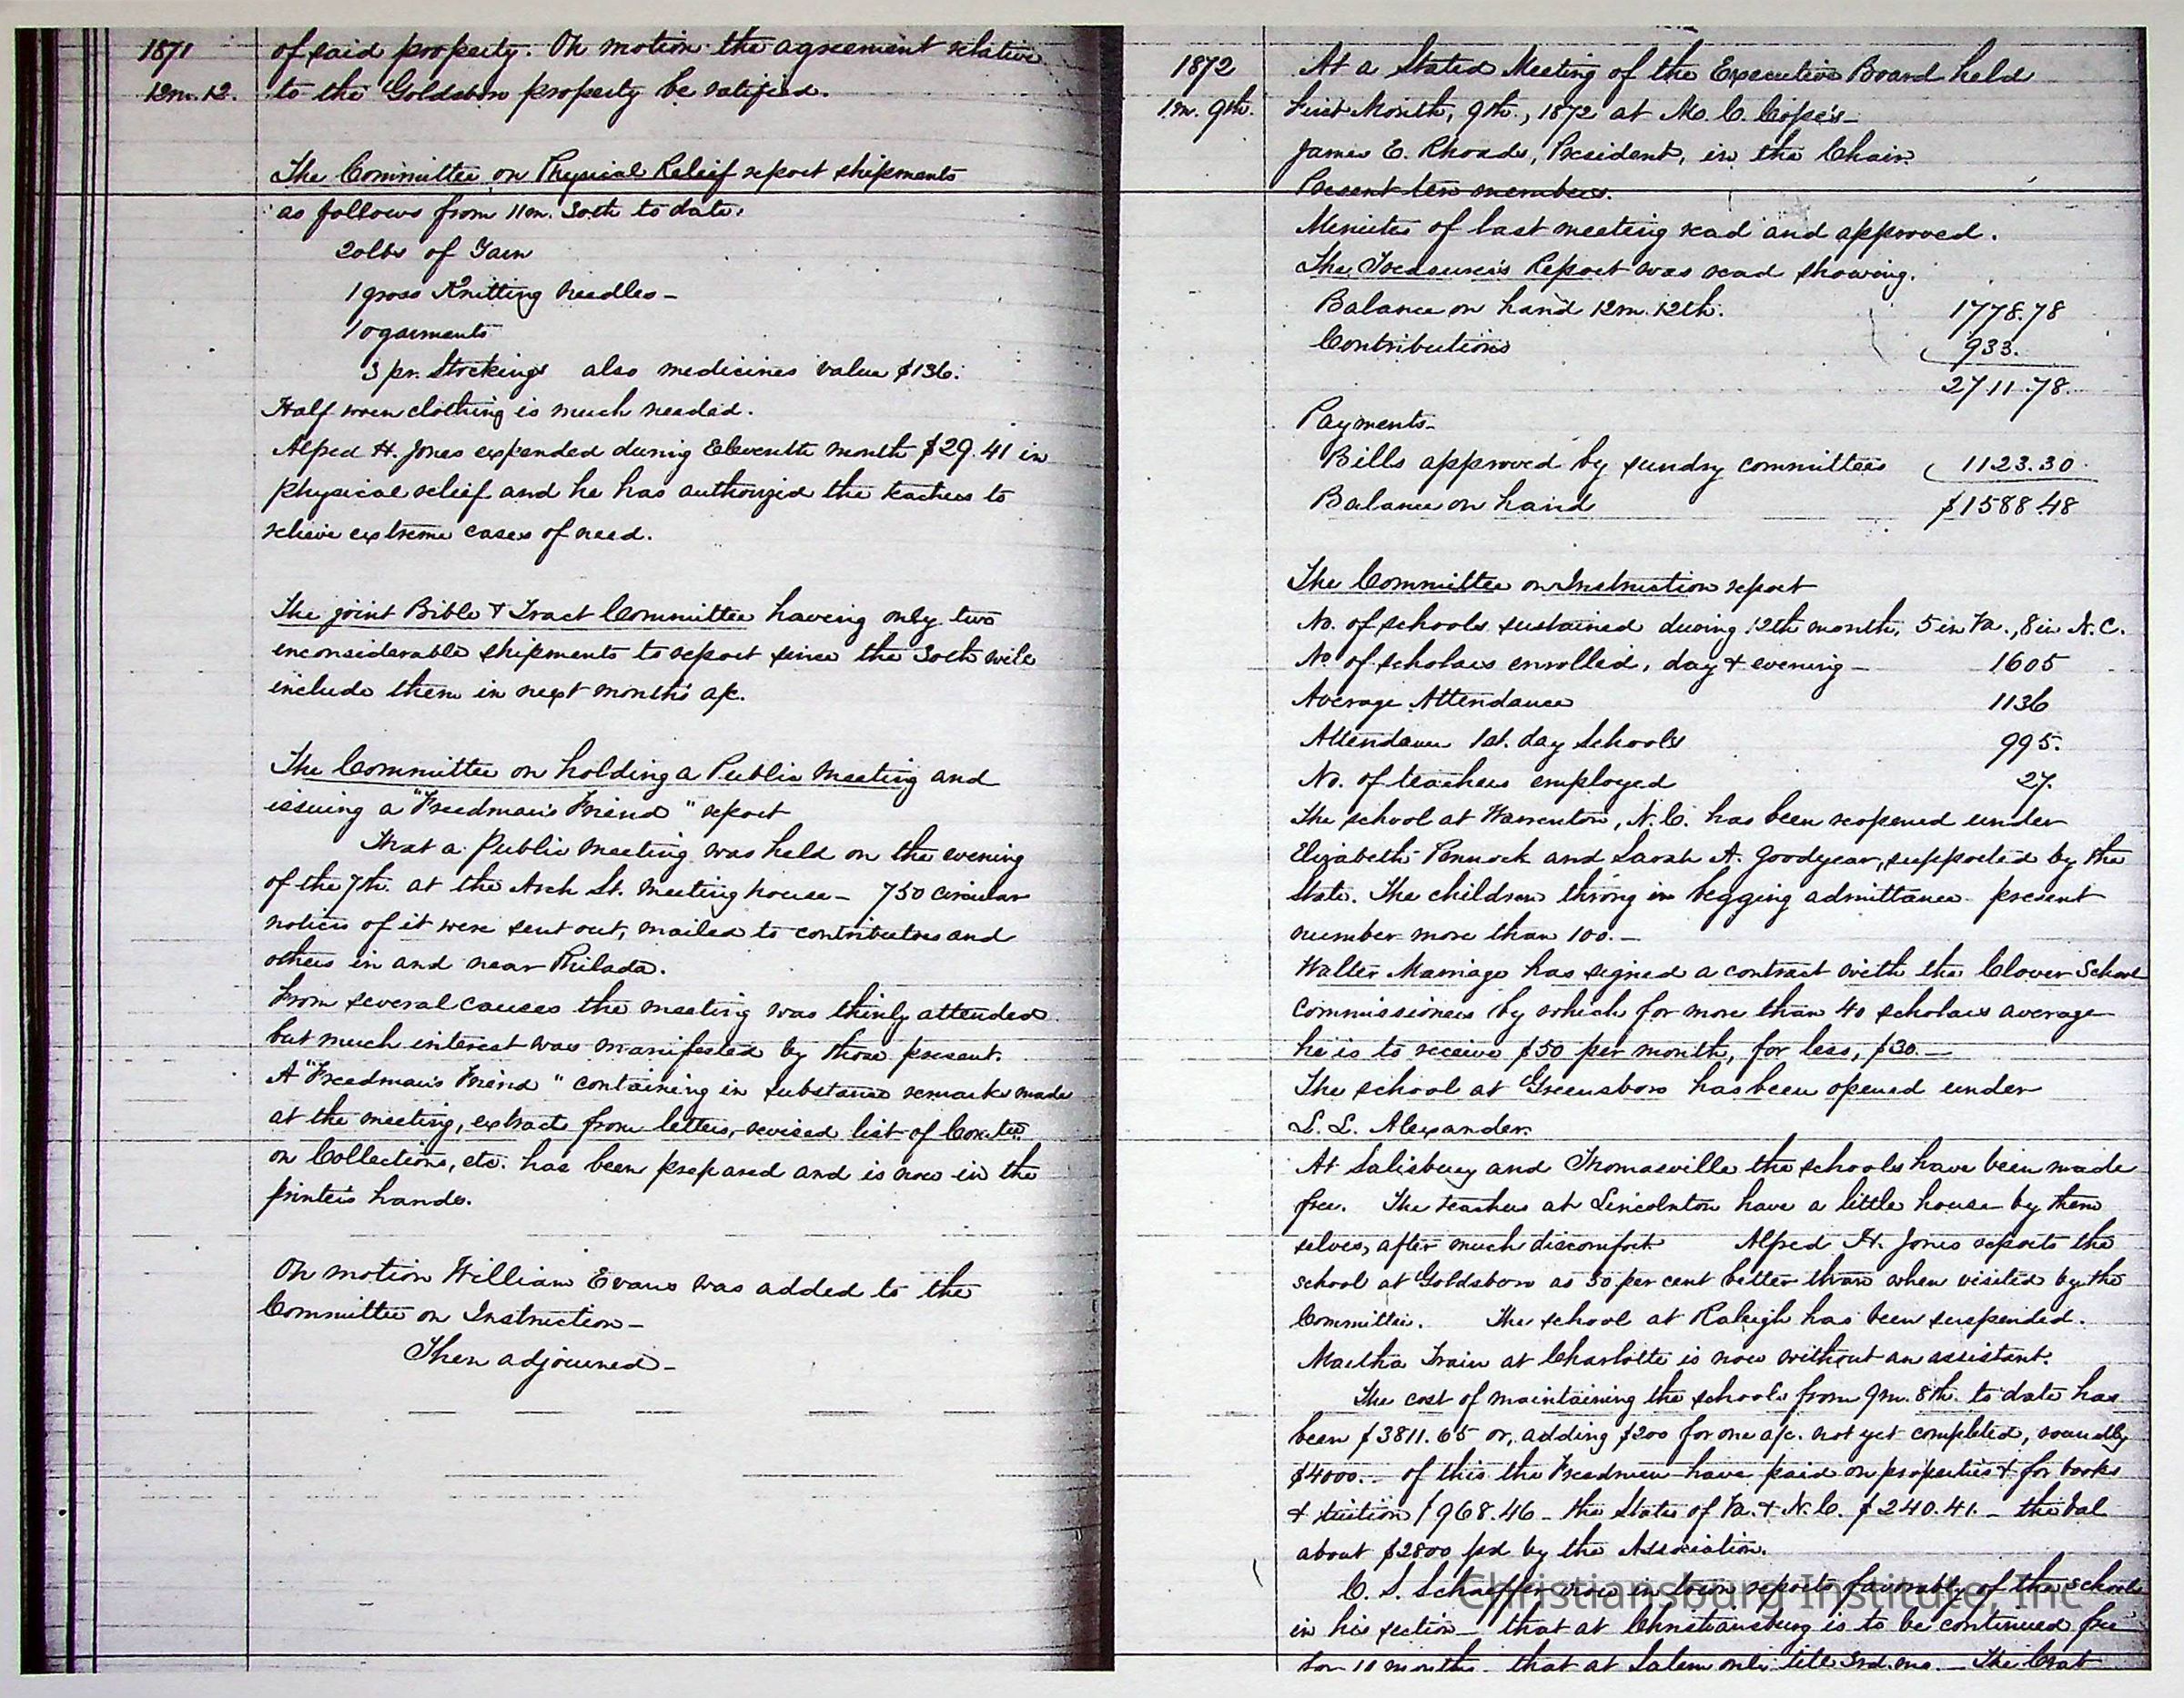 1871
12m. 12.
of said property. On motion the agreement relative
to the Goldsboro property be ratified.
The Committee on Physical Relief report shipments
as follows from 11m. 30th to date.
20lbs of Yarn
1 gross Knitting Needles -
10 garments
3 pr. Stockings also medicines value $136.
Half worn clothing is much needed.
Alfred H. Jones expended during Eleventh month $29.41 in
physical relief and he has authorized the teachers to
relieve extreme cases of need.
The joint Bible & Tract Committee having only two
inconsiderable shipments to report since the 30th will
include them in next month's a/c.
The Committee on holding a Public Meeting and
issuing a "Freedman's Friend" report
That a Public Meeting was held on the evening
of the 7th. at the Arch St. Meeting house - 750 circular
notices of it were sent out, mailed to contributors and
others in and near Philada.
From several causes the meeting was thinly attended
but much interest was manifested by those present.
A "Freedman's Friend" containing in substance remarks made
at the meeting, extracts from letters, revised list of Com.tee
on Collections, etc. has been prepared and is now in the
printer's hands.
On motion William Evans was added to the
Committee on Instruction -
Then adjourned -
1872
1m. 9th.
At a Stated Meeting of the Executive Board held
First Month, 9th., 1872 at M. C. Cope's -
James E. Rhoads, President, in the Chair.
Present ten members.
Minutes of last meeting read and approved.
The Treasurer's Report was read showing.
Balance on hand 12m. 12th. 1778.78
Contributions 933.
2711.78.
Payments -
Bills approved by sundry committees 1123.30
Balance on hand $1588.48
The Committee on Instruction report
No. of schools sustained during 12th month, 5 in Va., 8 in N.C.
No. of scholars enrolled, day & evening - 1605
Average Attendance 1136
Attendance 1st. day Schools 995.
No. of teachers employed 27.
The school at Warrenton, N.C. has been reopened under
Elizabeth Pennock and Sarah A. Goodyear, supported by the
State. The children throng in begging admittance present
number more than 100. -
Walter Marriage has signed a contract with the Clover School
Commissioners by which for more than 40 scholars average
he is to receive $50 per month, for less, $30. -
The school at Greensboro has been opened under
L. L. Alexander.
At Salisbury and Thomasville the schools have been made
free. The teachers at Lincolnton have a little house by them
selves, after much discomfort. Alfred H. Jones reports the
school at Goldsboro as 50 per cent better than when visited by the
Committee. The school at Raleigh has been suspended.
Martha Train at Charlotte is now without an assistant.
The cost of maintaining the schools from 9m. 8th. to date has
been $3811.65 or, adding $200 for one a/c. not yet completed, roundly
$4000. - of this the Freedmen have paid on properties & for books
& tuition $968.46 - the States of Va. & N.C. $240.41. - the bal
about $2800 pd by the Association.
C. S. Schaeffer now in town reports favorably of the schools
in his section - that at Christiansburg is to be continued free
for 10 months - that at Salem only till 3rd. mo. - The
Christiansburg Institute, Inc